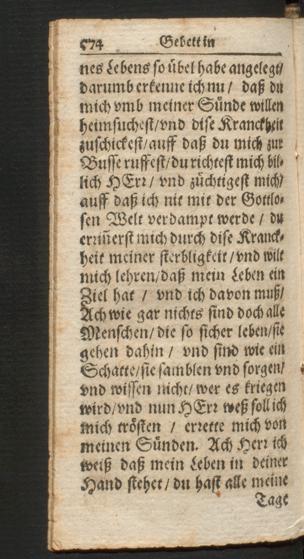 574 Gebett in
nes Lebens so übel habe angelegt/
darumb erkenne ich nu / daß du
mich vmb meiner Sünde willen
heimsuchest/vnd dise Kranckheit
zuschickest/auff daß du mich zur
Busse ruffest/du richtest mich bil-
lich HErr / vnd züchtigest mich/
auff daß ich nit mit der Gottlo-
sen Welt verdampt werde / du
erriñerst mich durch dise Kranck-
heit meiner sterbligkeit / vnd wilt
mich lehren/daß mein Leben ein
Ziel hat / vnd ich davon muß/
Ach wie gar nichts sind doch alle
Menschen/ die so sicher leben/sie
gehen dahin / vnd sind wie ein
Schatte/sie samblen vnd sorgen/
vnd wissen nicht/ wer es kriegen
wird/vnd nun HErr weß soll ich
mich trösten / errette mich von
meinen Sünden. Ach Herr ich
weiß daß mein Leben in deiner
Hand stehet/ du hast alle meine
Tage